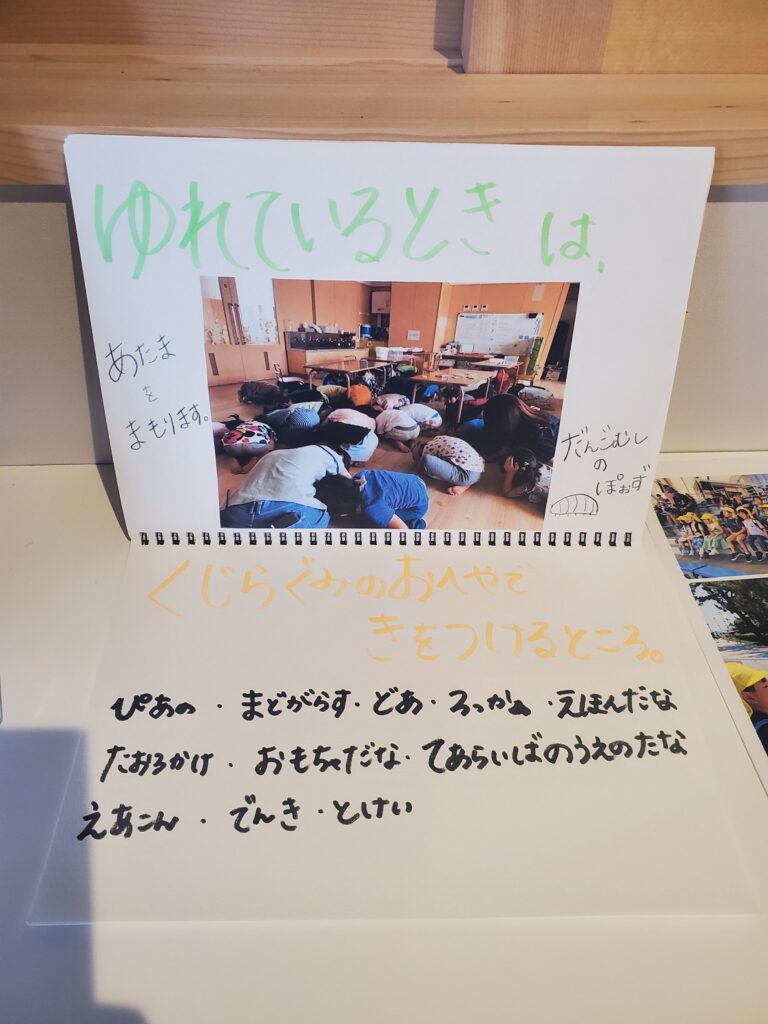 ゆれているときは、
あたま
を
まもります。
だんごむし
の
ぽぉず
くじらぐみのおへやで
きをつけるところ。
ぴあの・まどがらす・どあ・ろっかぁ・えほんだな
たおるかけ・おもちゃだな・てあらいばのうえのたな
えあこん・でんき・とけい